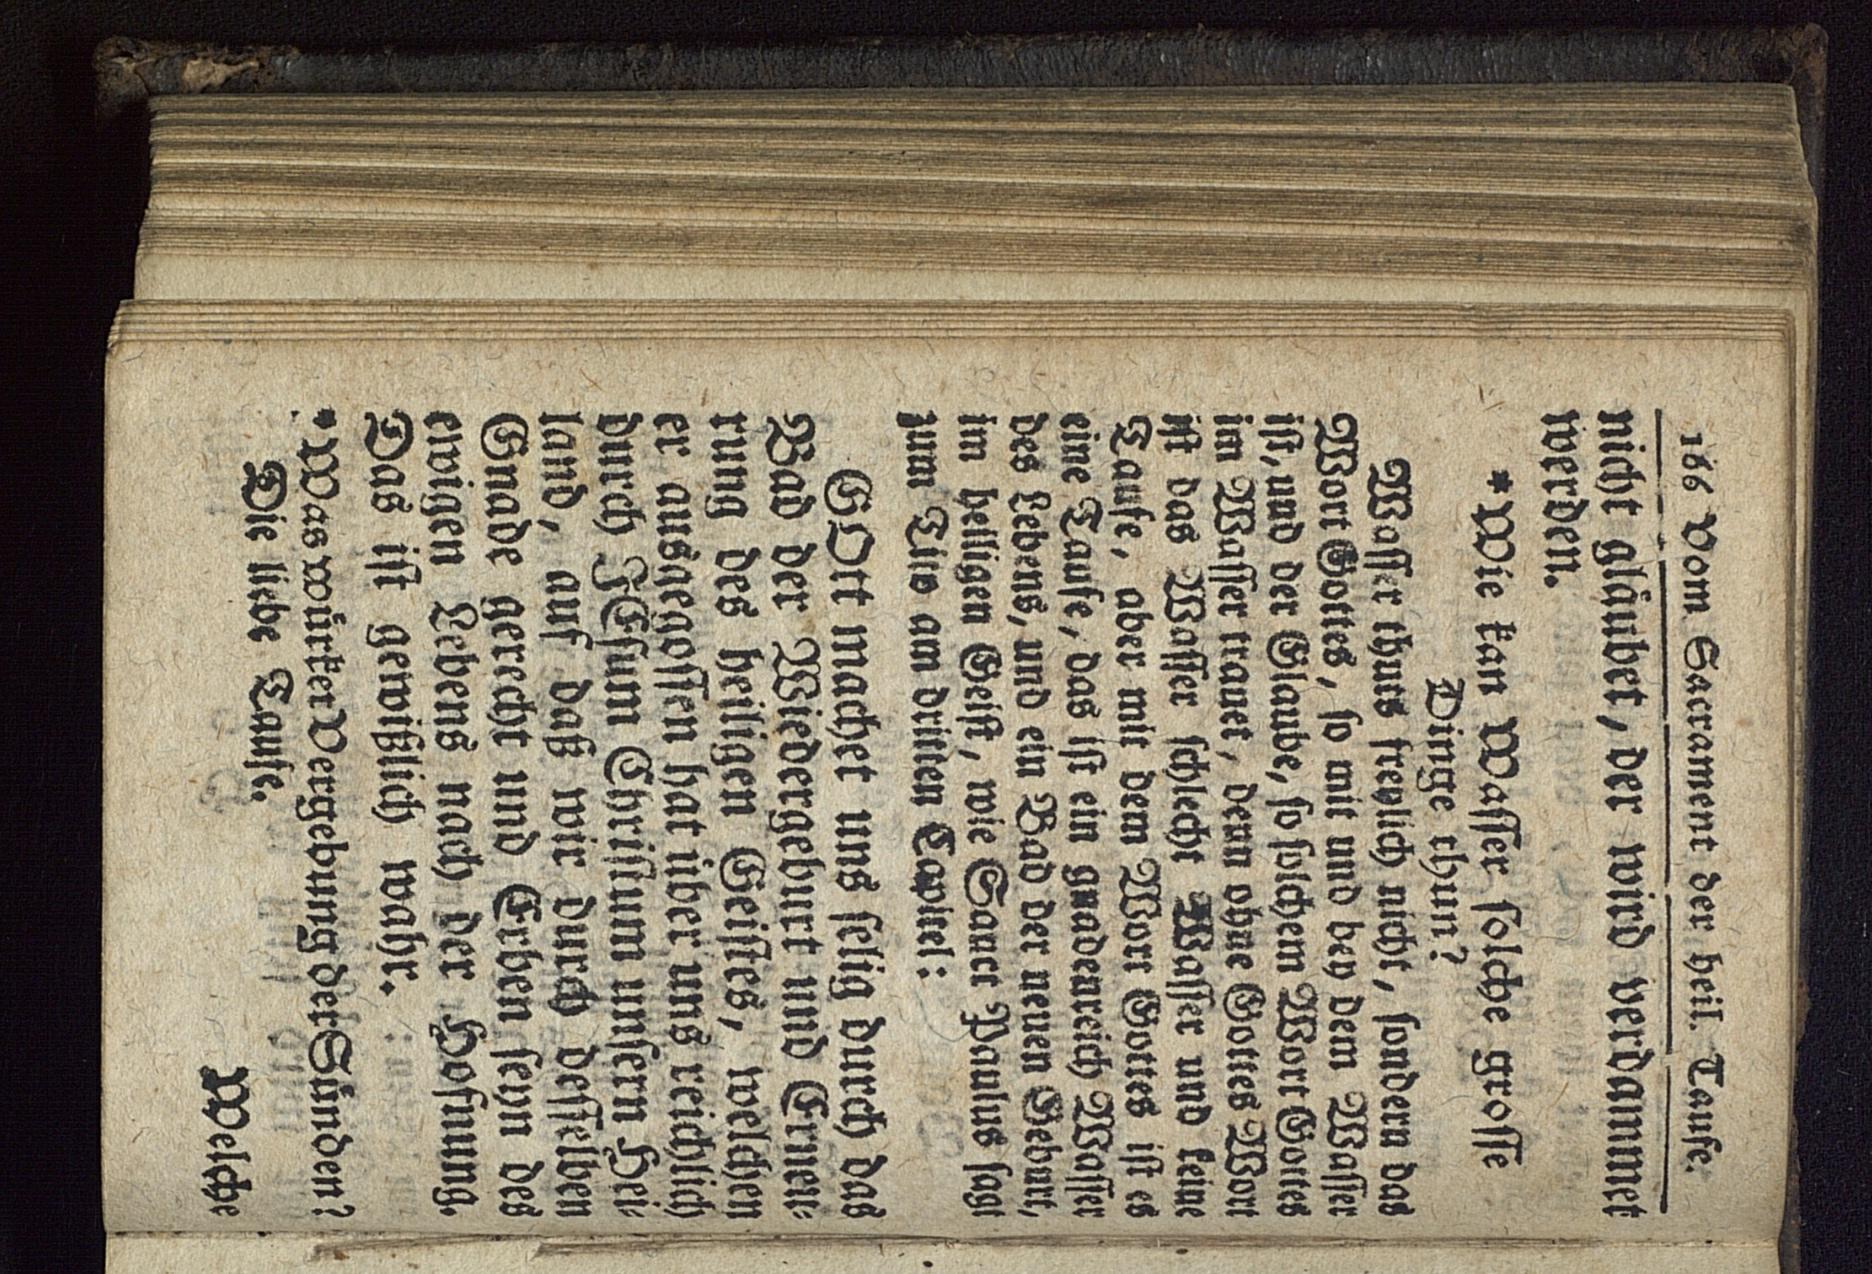 166 Vom Sacrament der heil. Taufe.
nicht gläubet, der wird verdammet
werden.
*Wie kan Wasser solche grosse
Dinge thun?
Wasser thuts freylich nicht, sondern das
Wort Gottes, so mit und bey dem Wasser
ist, und der Glaube, so solchem Wort Gottes
im Wasser trauet, denn ohne Gottes Wort
ist das Wasser schlecht Wasser und keine
Taufe, aber mit dem Wort Gottes ist es
eine Taufe, das ist ein gnadenreich Wasser
des Lebens, und ein Bad der neuen Geburt,
im heiligen Geist, wie Sanct Paulus sagt
zum Tito am dritten Capitel:
GOtt machet uns selig durch das
Bad der Wiedergeburt und Erneu-
rung des heiligen Geistes, welchen
er ausgegossen hat über uns reichlich
durch JEsum Christum unsern Hei-
land, auf daß wir durch desselben
Gnade gerecht und Erben seyn des
ewigen Lebens nach der Hofnung.
Das ist gewißlich wahr.
*Was würket Vergebung der Sünden?
Die liebe Taufe.
Welche